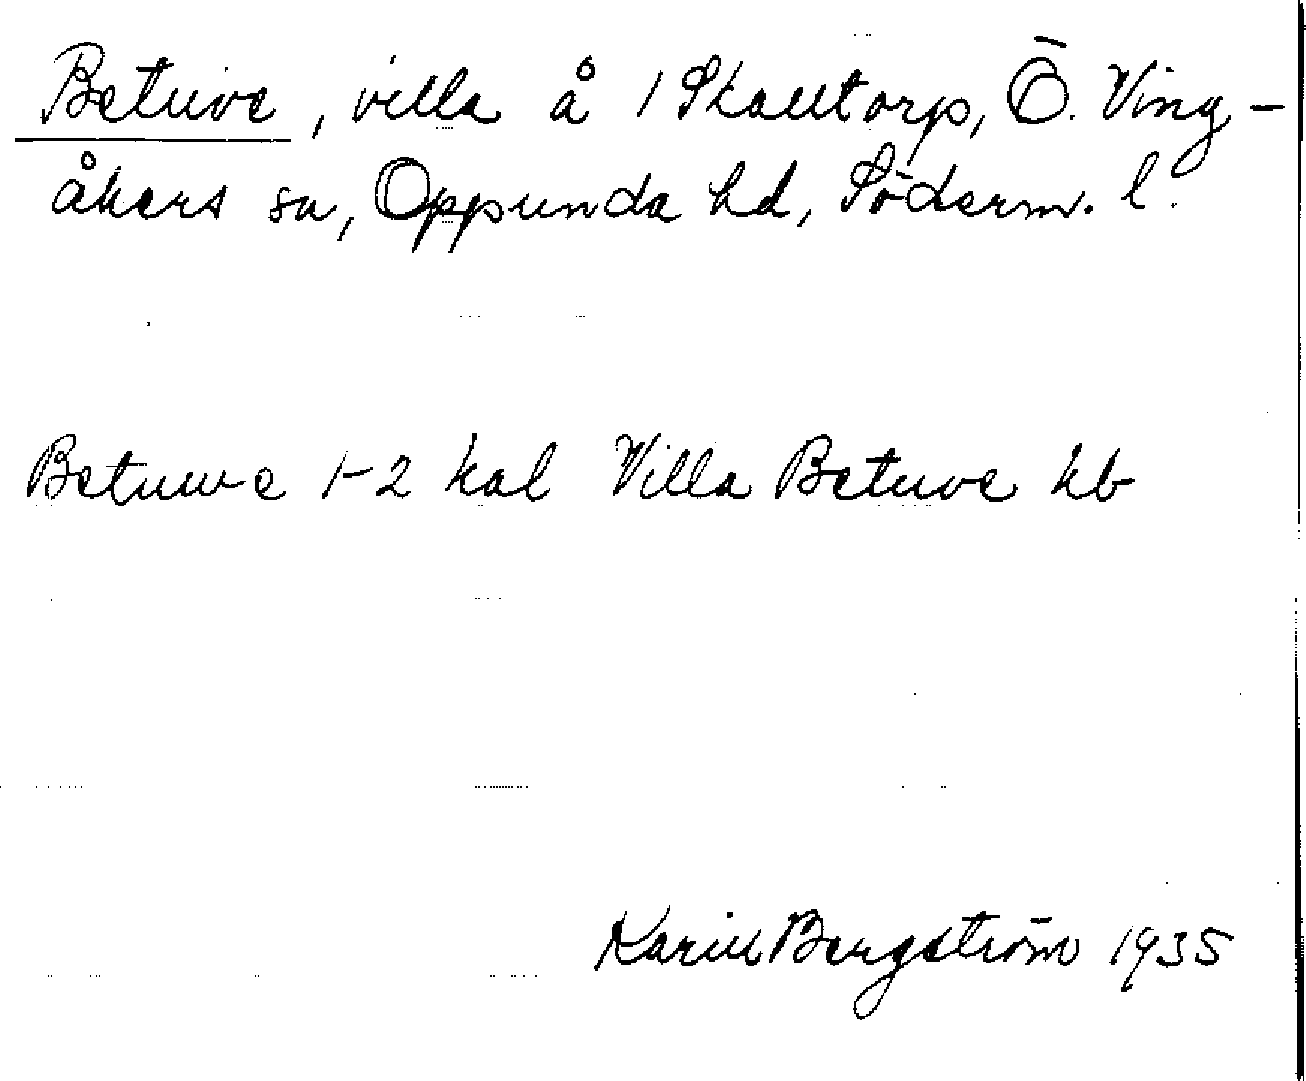 Betuve, villa å 1 Skalltorp, Ö. Ving-
åkers sn, Oppunda hd, Söderm. l.
Betuwe 1-2 kal Villa Betuve hb
Karin Bergström 1935